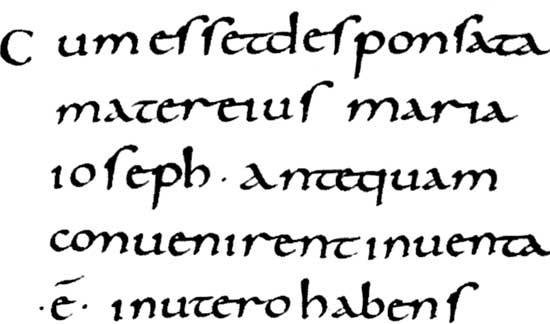 C um essetdesponsata
matereius maria
ioseph · antequam
conuenirent inuenta
· ē · inutero habens